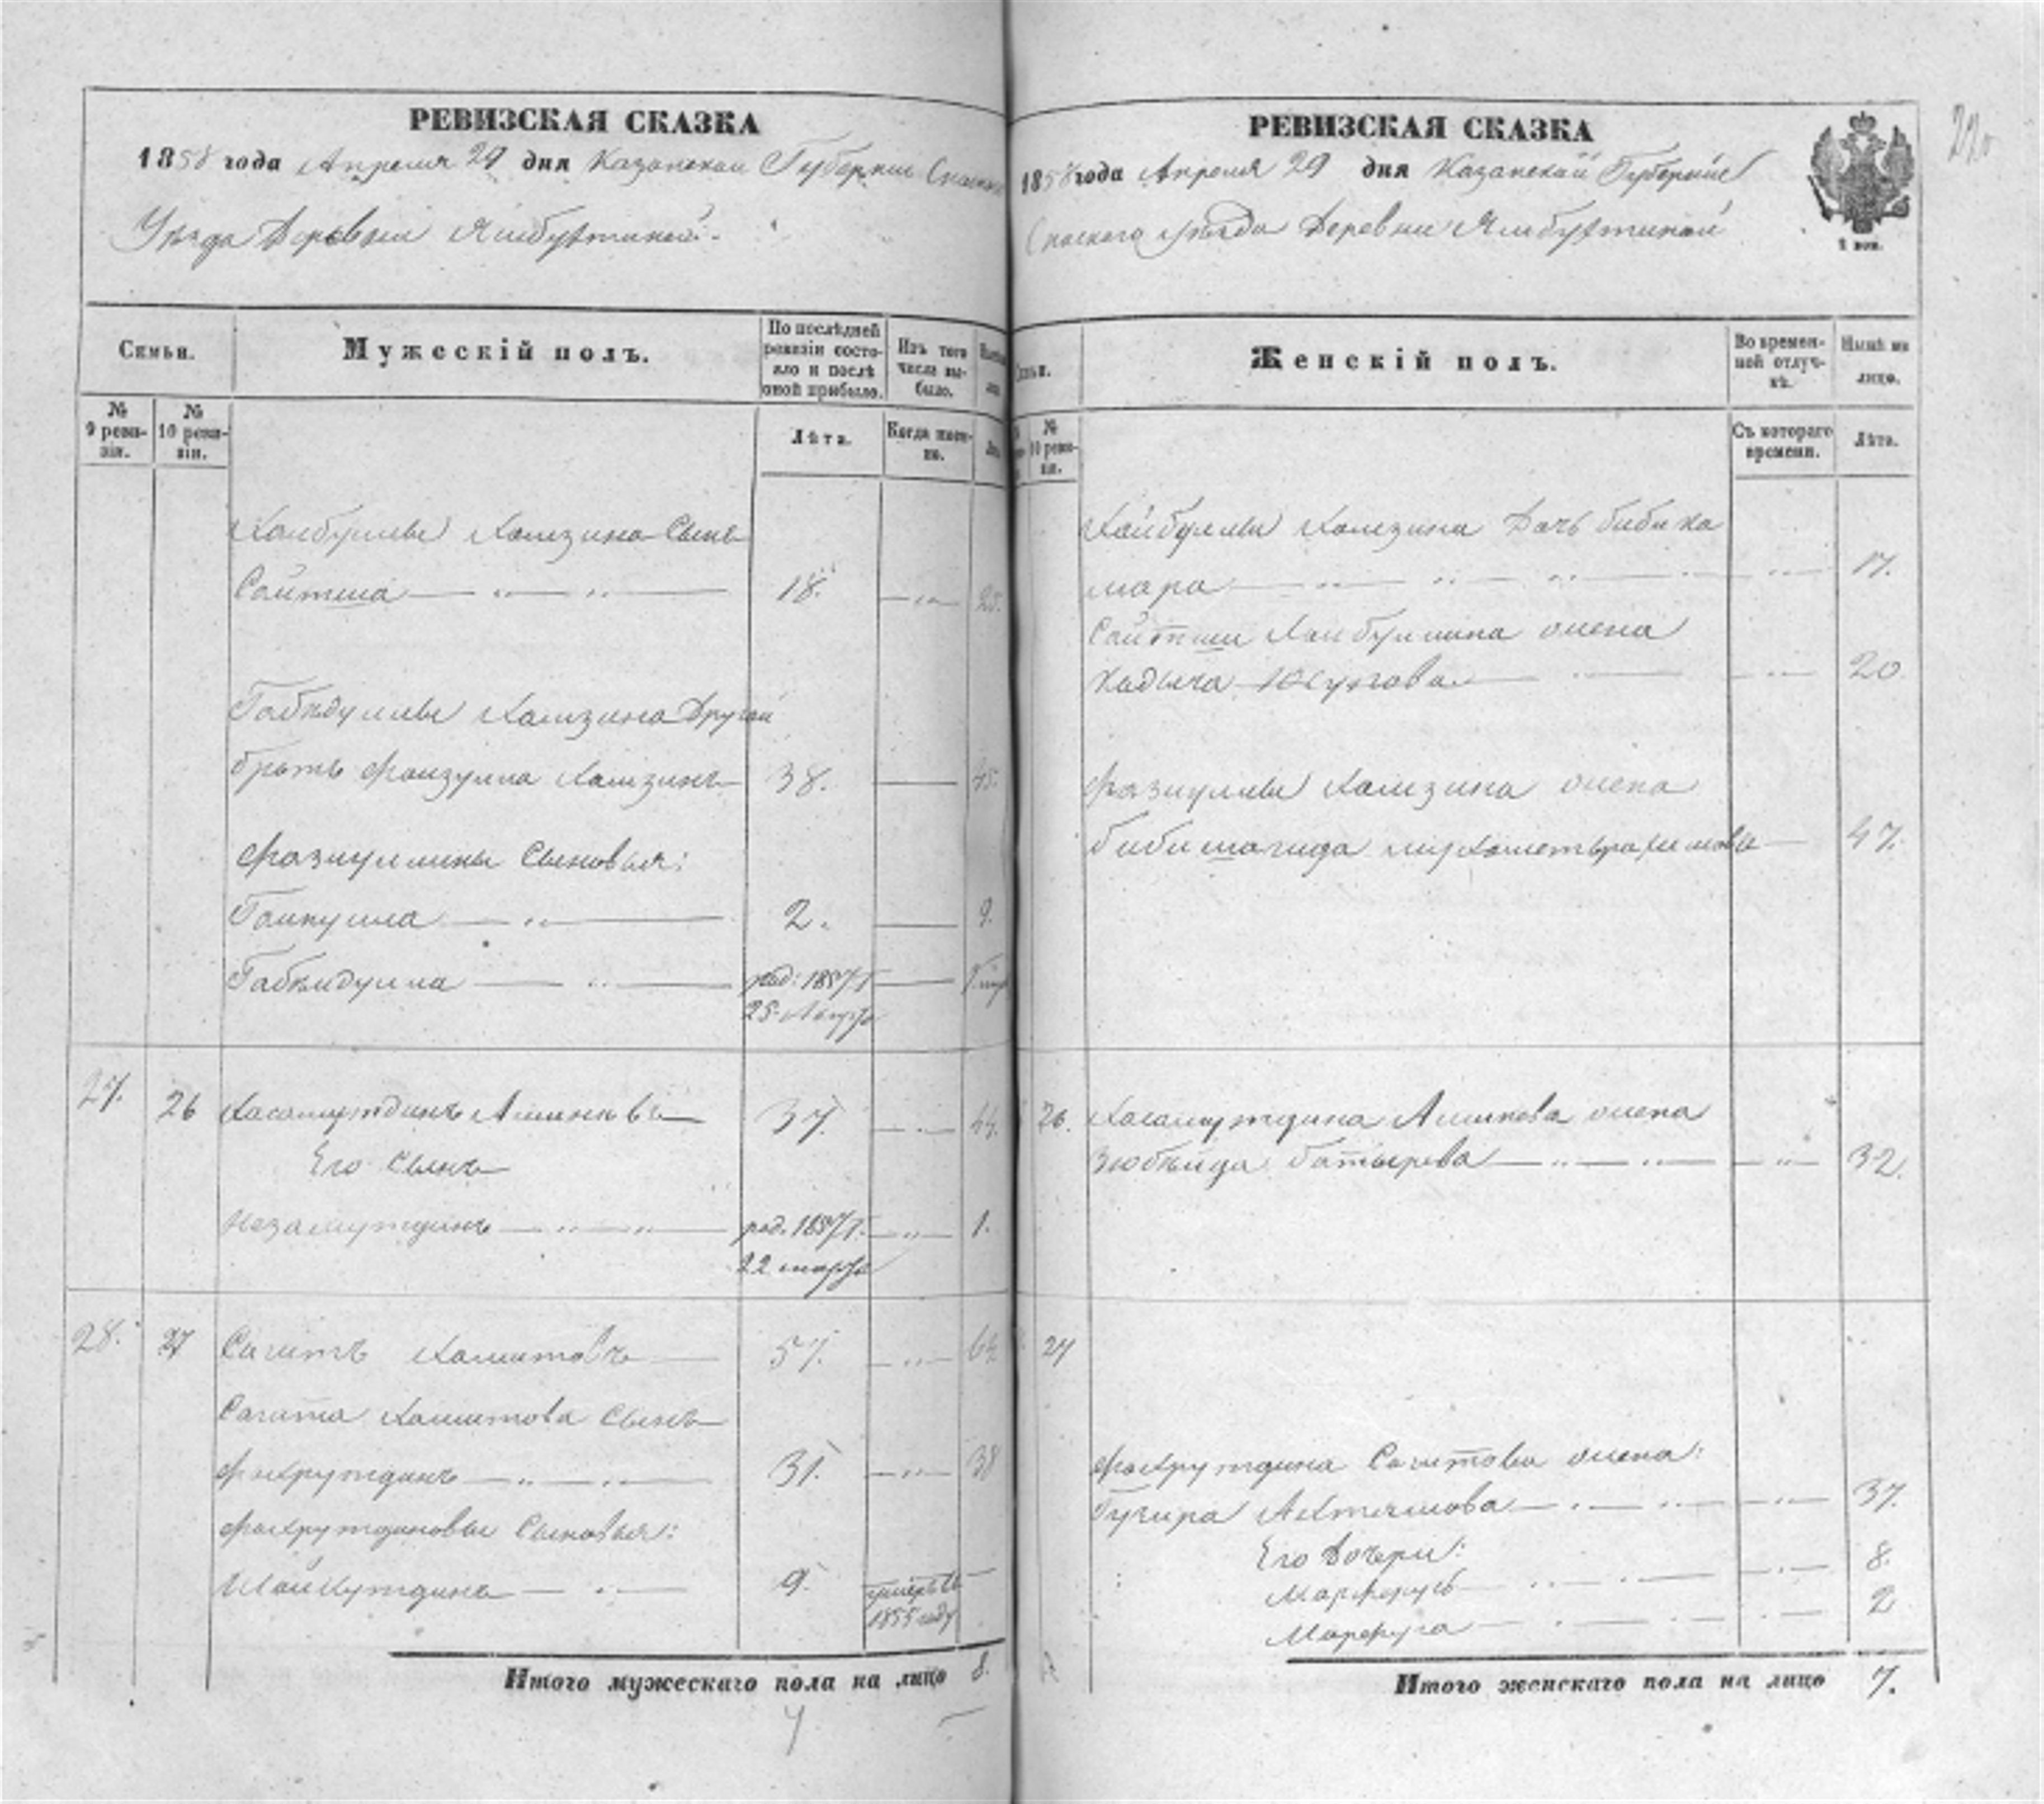 РЕВИЗСКАЯ СКАЗКА
1858 года Апреля 29 дня Казанской Губернии Спаскаго
Уезда Деревни Ямбухтиной
Семьи.
Мужескій полъ.
По послѣдней ревизіи состояло и послѣ оной прибыло.
Изъ того числа выбыло.
№ 9 ревизіи.
№ 10 ревизіи.
Лѣта.
Когда именно.
Хайбуллы Хамзина Сынъ
Сайтша 18. 25.
Габидуллы Хамзина Другой
братъ Файзулла Хамзинъ 38. 45.
Фазиуллины Сыновья:
Гайнулла 2. 9.
Габидулла род: 1857 г
25 Авгус
27. 26 Хасамутдинъ Аминевъ 37. 44.
Его Сынъ
Незамутдинъ род. 1857 г. 1.
22 марта
28. 27 Сагитъ Хамитовъ 57. 64
Сагита Хамитова Сынъ
Фахрутдинъ 31. 38
Фахрутдиновы Сыновья:
Шайхутдинъ 9. умеръ въ
1855 году
Итого мужескаго пола на лицо 8.
РЕВИЗСКАЯ СКАЗКА
1858 года Апреля 29 дня Казанской Губерніи
Спаскаго уезда Деревни Ямбухтиной
Семьи.
Женскій полъ.
Во временной отлучкѣ.
Нынѣ на лицо.
№ 10 ревизіи.
Съ котораго времени.
Лѣта.
Хайбуллы Хамзина Дочь Бибика
мара 17.
Сайтши Хайбуллина жена
Хадыча Юсупова 20
Фазиуллы Хамзина жена
Бибимагида 47.
26. Хасамутдина Аминева жена
Зюбяида Батырева 32.
27
Фахрутдина Сагитова жена:
Актямова 37.
Его Дочери:
8.
2
Итого женскаго пола на лицо 7.